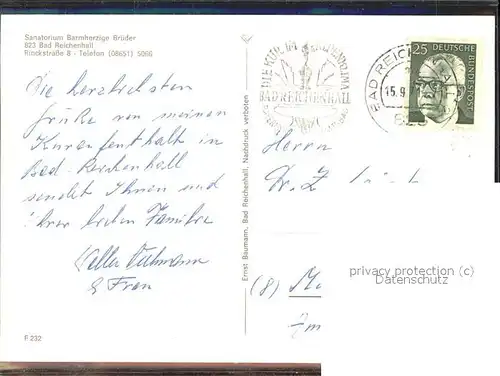 Sanatorium Barmherzige Brüder
823 Bad Reichenhall
Rinckstraße 8 - Telefon (08651) 5066
Die herzlichsten
Grüße von meinem
Kuraufenthalt in
Bad-Reichenhall
sendet Ihnen und
Ihrer lieben Familie
& Frau
F 232
Ernst Baumann, Bad Reichenhall, Nachdruck verboten
DIE KUR IM ALPENKLIMA
BAD REICHENHALL
BAD REICH
15.9.7
25 DEUTSCHE BUNDESPOST
Herrn
Dr. Z
(8)
privacy protection (c)
Datenschutz